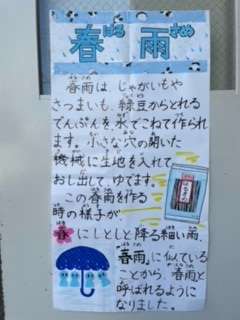 春雨
はる さめ
春雨は、じゃがいもや
さつまいも、緑豆からとれる
でんぷんを、水でこねて作られ
ます。小さな穴の開いた
機械に生地を入れて、
おし出して、ゆでます。
この春雨を作る
時の様子が、
春にしとしと降る細い雨、
「春雨」に似ている
ことから、春雨と
呼ばれるように
なりました。
はるさめ